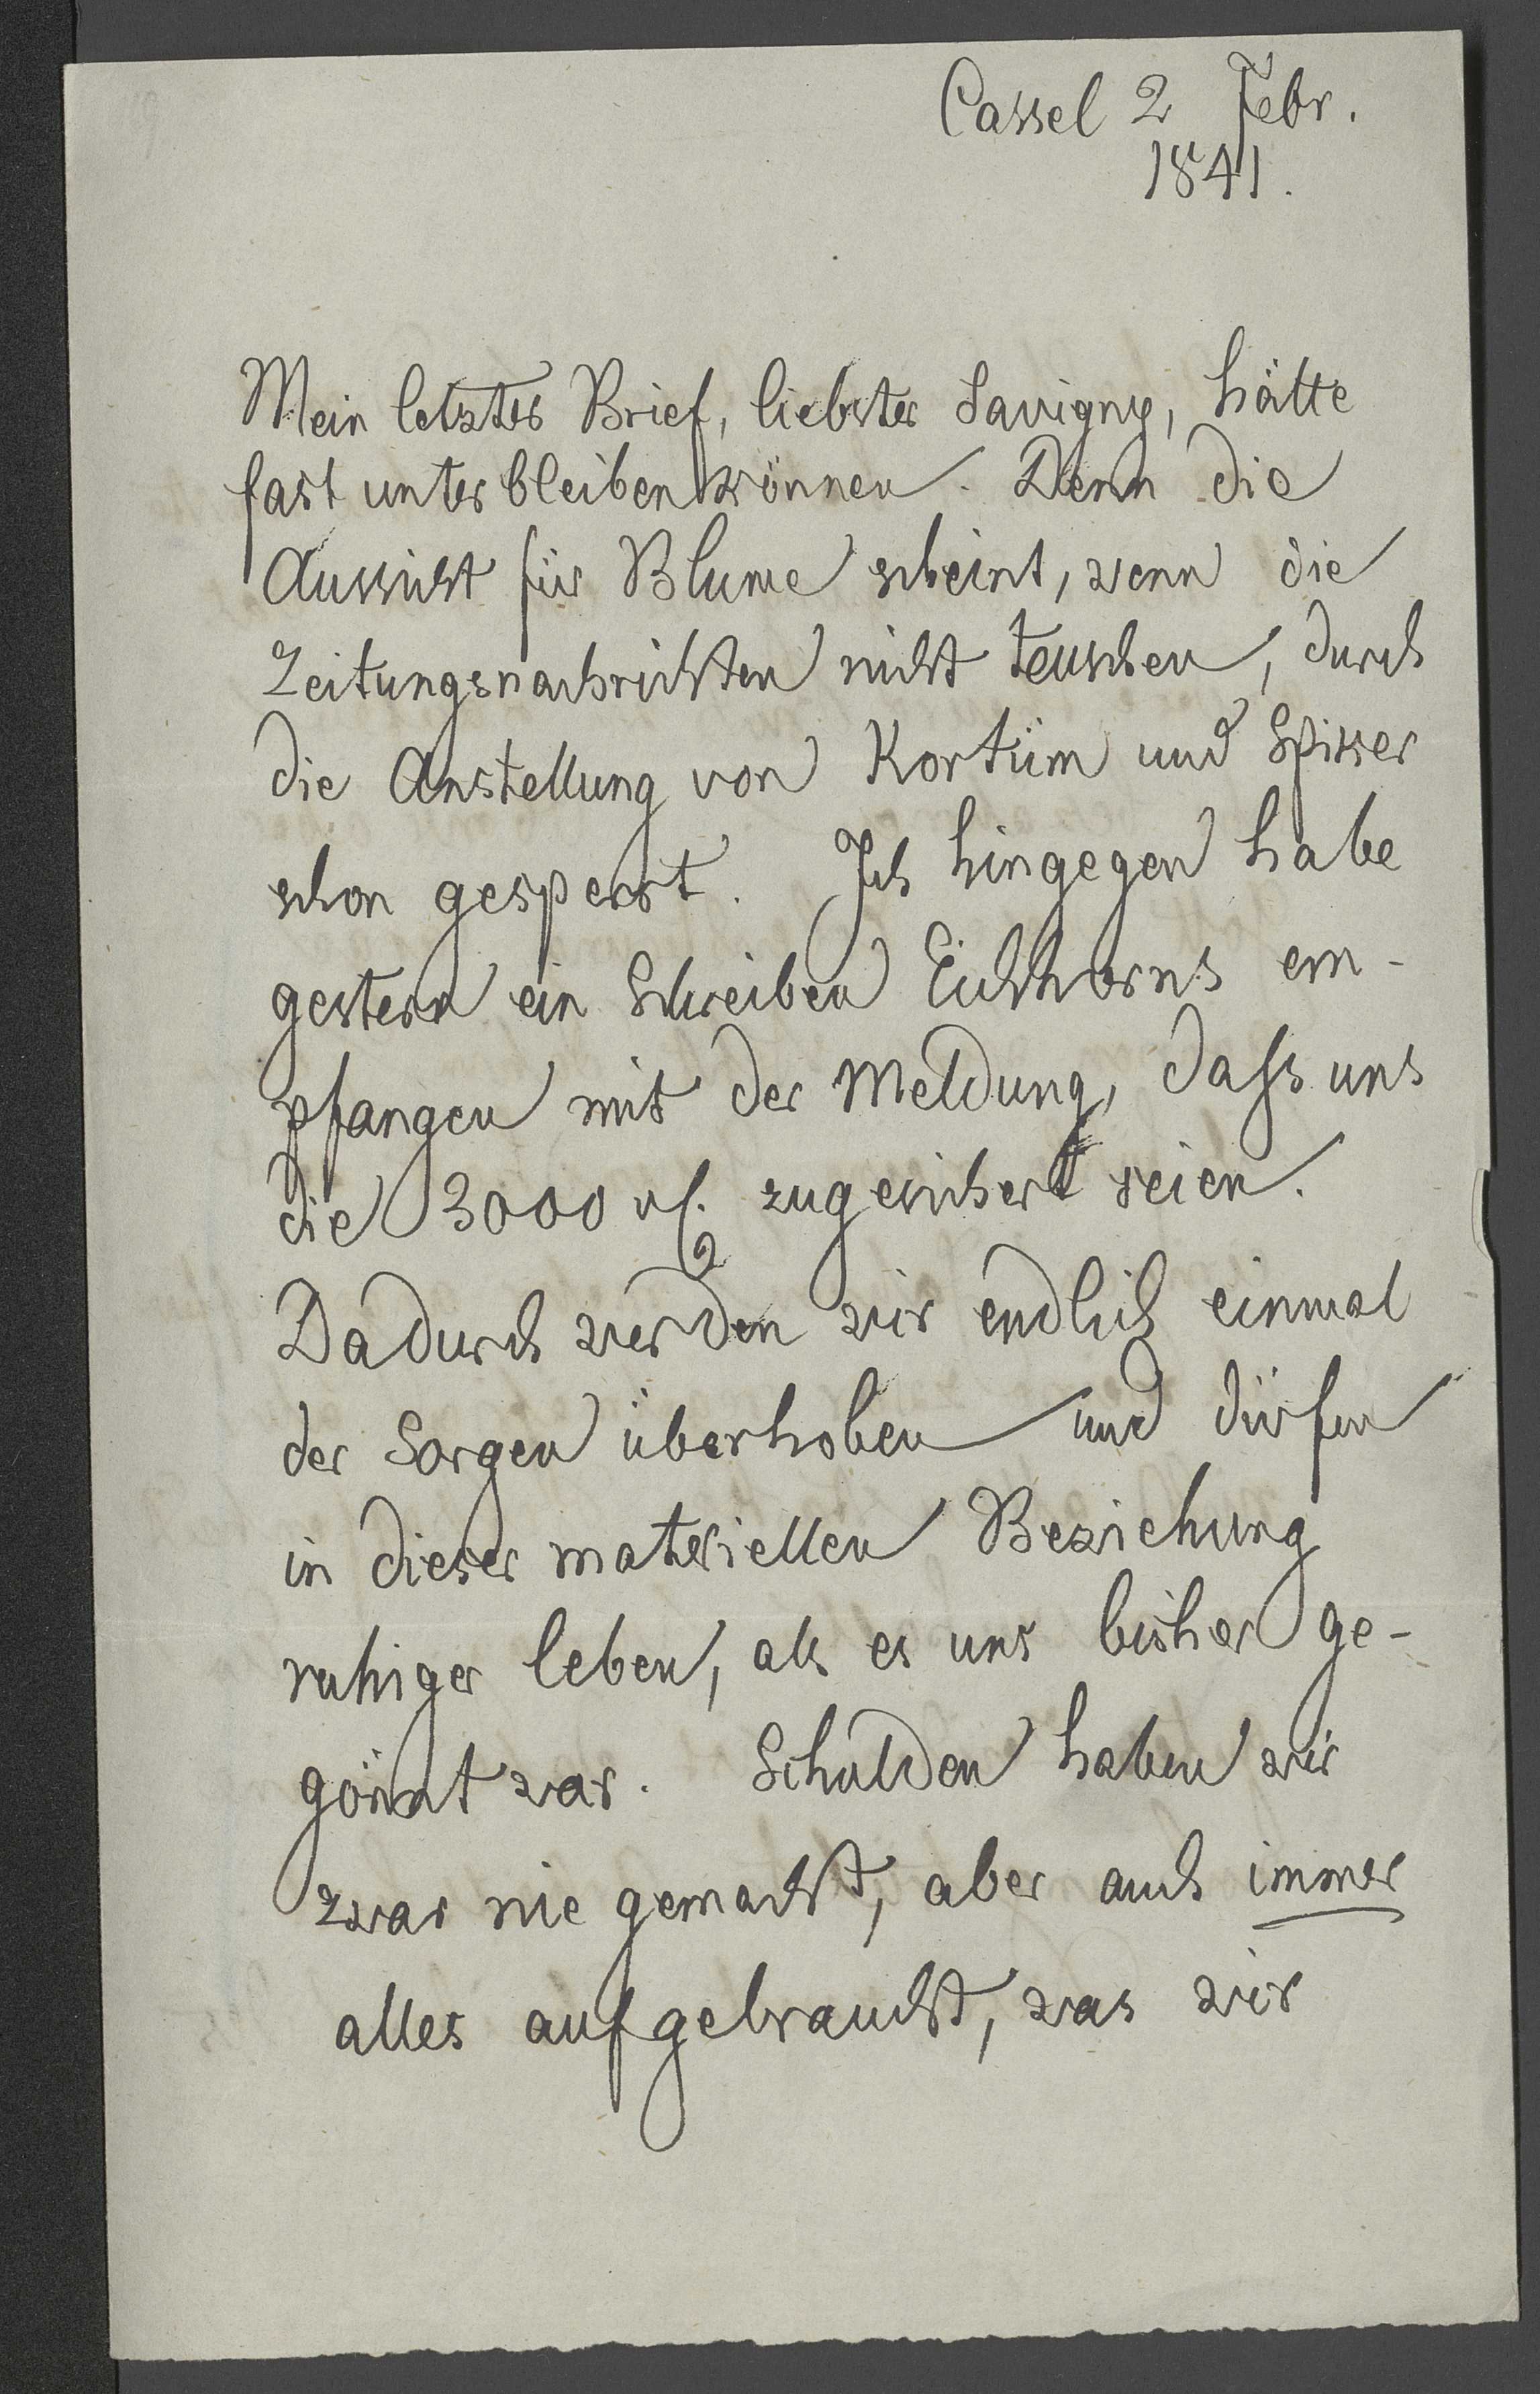 Cassel 2 Febr.
1841.
Mein letzter Brief, liebster Savigny, hätte
fast unterbleiben können. Denn die
Aussicht für Blume scheint, wenn die
Zeitungsnachrichten nicht teuschen, durch
die Anstellung von Kortüm und
schon gesperrt. Ich hingegen habe
gestern ein Schreiben Eichhorns em-
pfangen mit der Meldung, dass uns
die 3000 rf. zugesichert seien.
Dadurch werden wir endlich einmal
der Sorgen überhoben und dürfen
in dieser materiellen Beziehung
ruhiger leben, als es uns bisher ge-
gönnt war. Schulden haben wir
zwar nie gemacht, aber auch immer
alles aufgebraucht, was wir